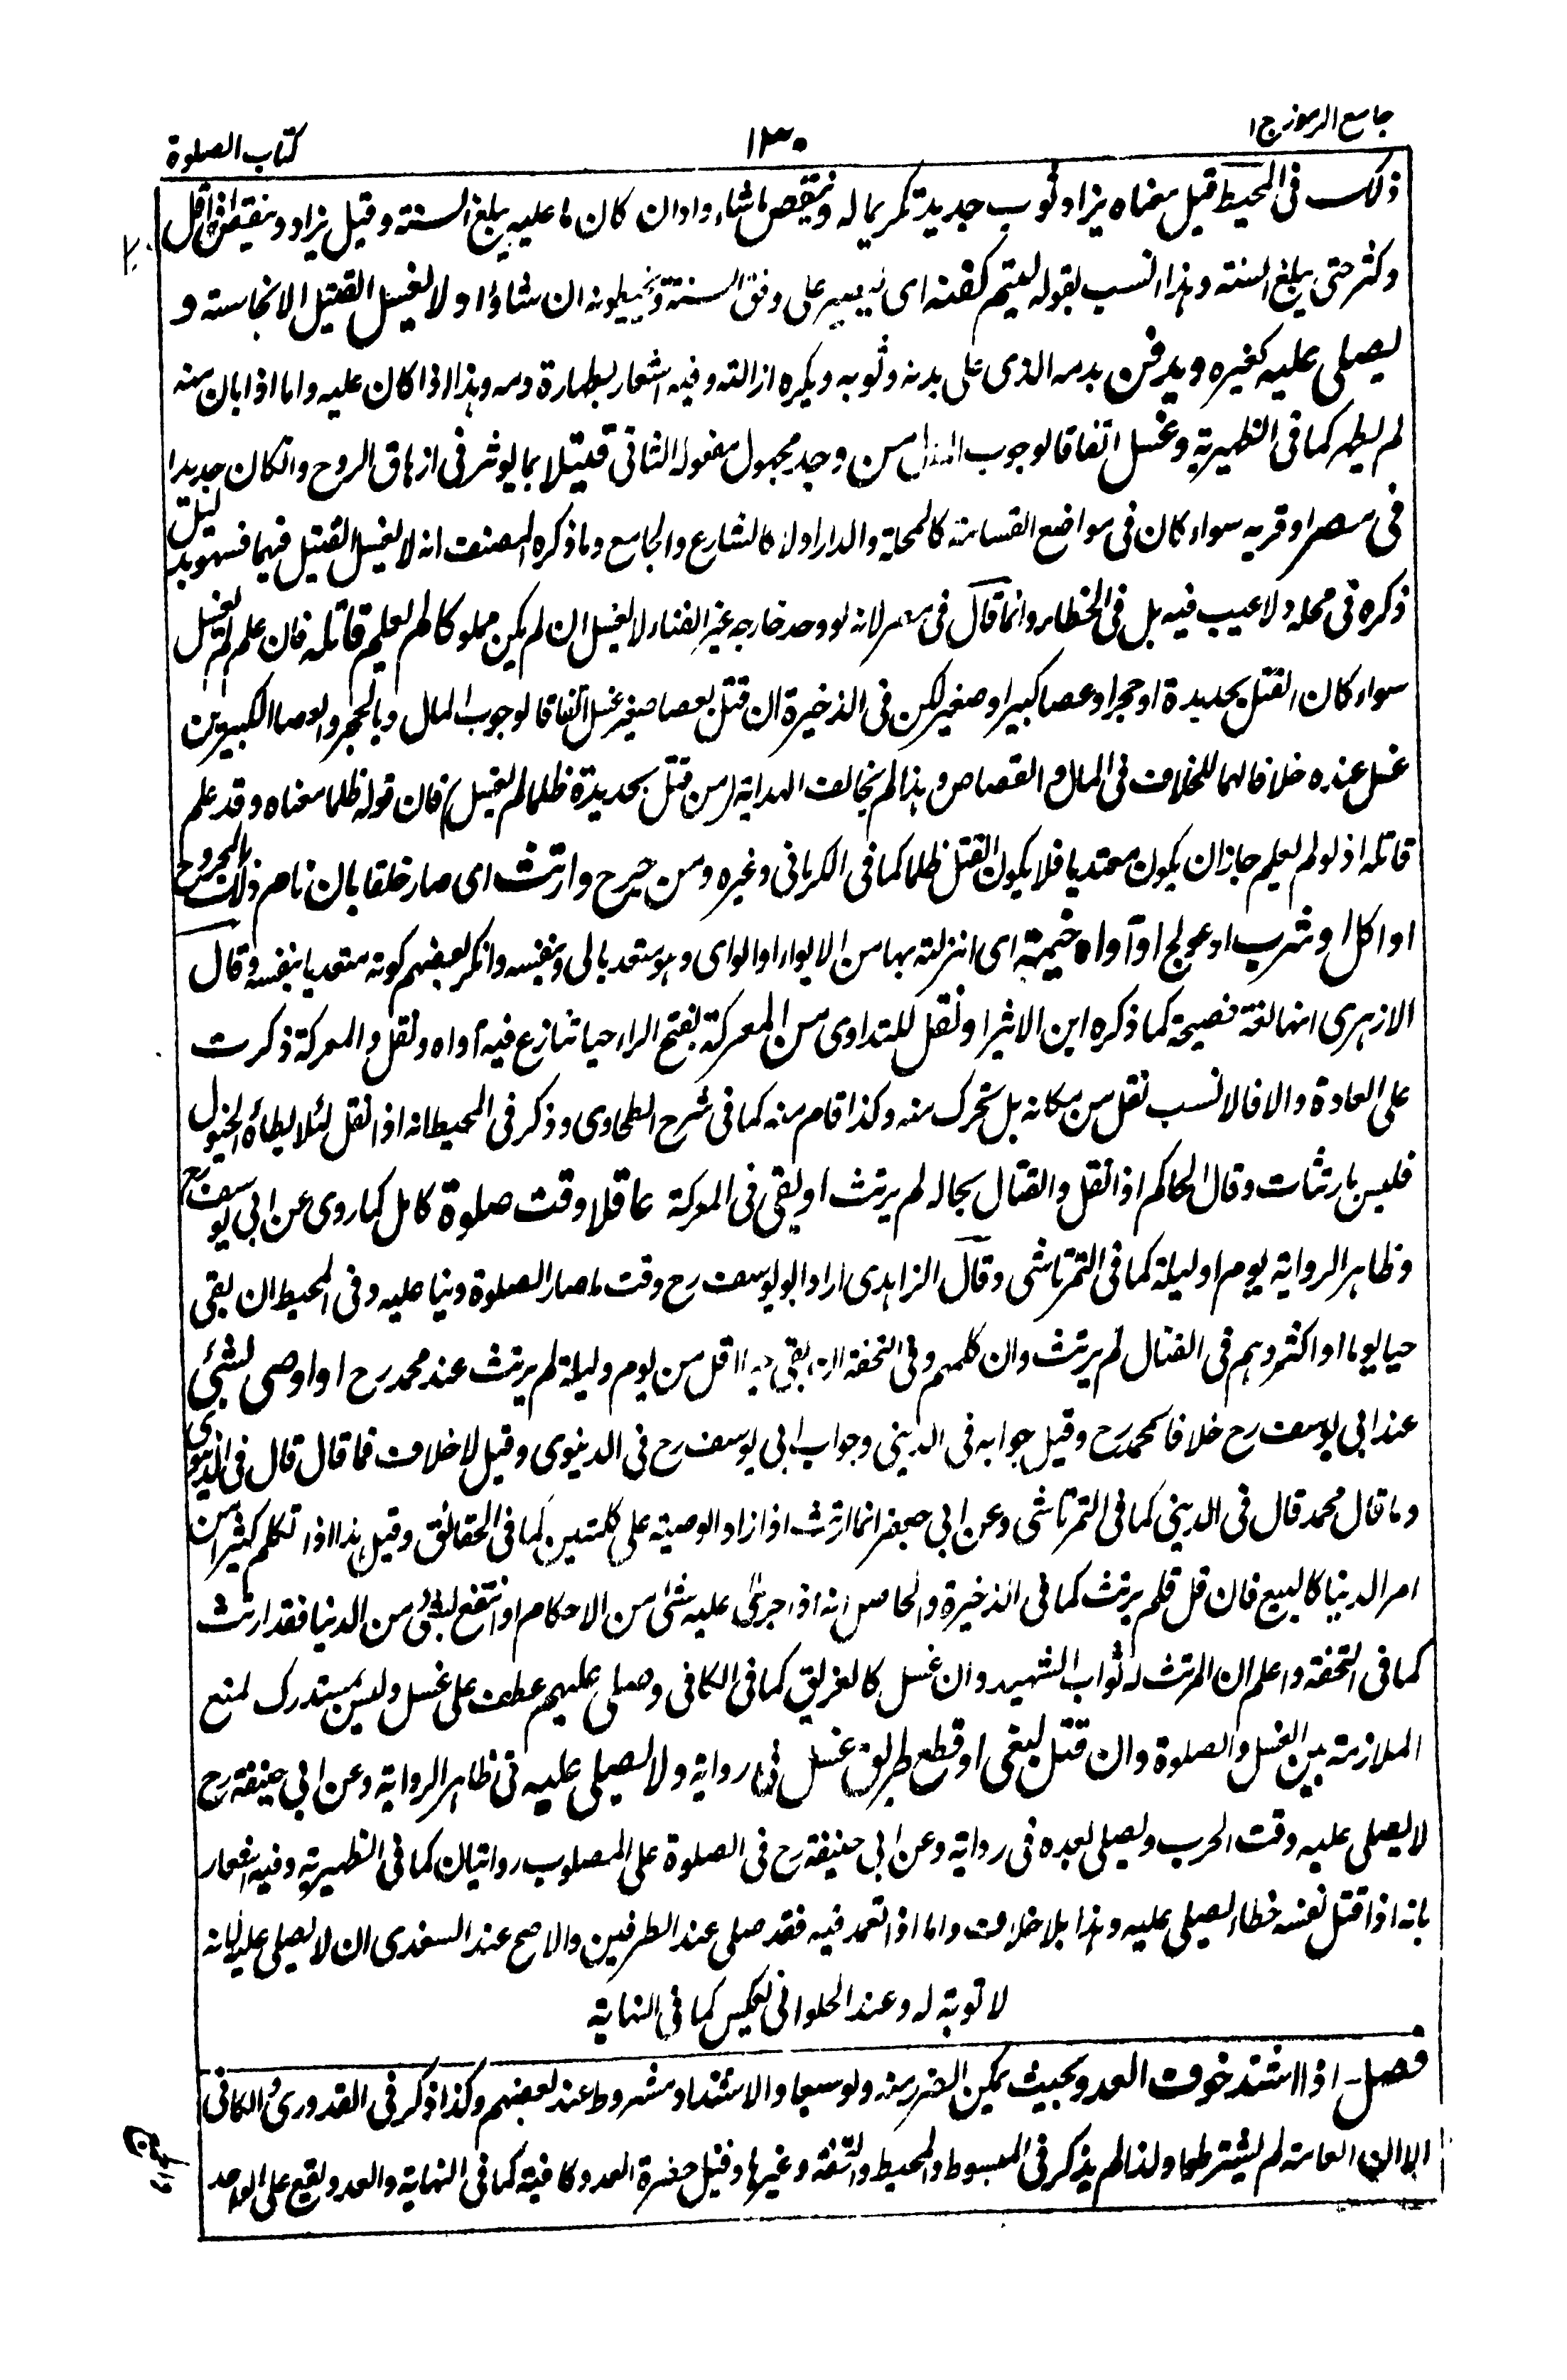 جامع الرموز ج١
١٣٠
كتاب الصلوة
ذلك فى المحيط قيل معناه يزاد ثوب جديد تكريما له وينقص ما شاء وا وان كان ما عليه يبلغ السنة وقيل يزاد وينقص اذا قل
وكثر حتى يبلغ السنة وهذا انسب بقوله ليتم كفنه اى على وفق السنة ان شاؤا ولا يغسل القتيل الا نجاسته و
يصلى عليه كغيره ويدفن بدمه الذى على بدنه وثوبه ويكره ازالته وفيه اشعار بطهارة دمه وهذا اذا كان عليه واما اذا بان منه
لم يطهر كما فى الظهيرية وغسل اتفاقا لوجوب المال من وجد مجهول مفعوله الثانى قتيلا بما يوثر فى ازهاق الروح وانكان حديدا
فى مصر او قرية سواء كان فى مواضع القسامة كالمحلة والدار اولا كالشارع والجامع وما ذكره المصنف انه لا يغسل القتيل فيهما فسهو بد ليل
ذكره فى محله ولا عيب فيه بل فى الخطاء وانما قال فى مصر لانه لو وجد خارجه غير الفناء لا يغسل ان لم يكن مملوكا لم يعلم قاتله فان علم لم يغسل
سواء كان القتل بحديدة او حجر او عصا كبير او صغير لكن فى الذخيرة ان قتل بعصا صغير غسل اتفاقا لوجوب المال وبالحجر والعصا الكبيرين
غسل عنده خلافا لهما للخلاف فى المال والقصاص وهذا لم يخالف الهداية (من قتل بحديدة ظلما لم يغسل) فان قوله ظلما معناه وقد علم
قاتله اذ لو لم يعلم جاز ان يكون معتديا فلا يكون القتل ظلما كما فى الكرمانى وغيره ومن جرح وارتث اى صار خلقا بان ناصر ذلك المجروح
او اكل او شرب او عولج او آواه خيمة اى انزلته بها من الايواء او الواى وهو متعد بالى وبنفسه وانكر بعضهم كونه متعديا بنفسه وقال
الازهرى انها لغة فصيحة كما ذكره ابن الاثير او نقل للتداوى من المعركة بفتح الراء حيا تنازع فيه آواه ونقل والمعركة ذكرت
على العادة والا فالانسب نقل من مكانه بل تحرك منه وكذا قام منه كما فى شرح الطحاوى وذكر فى المحيط انه اذا نقل لئلا يطأه الخيول
فليس بارتثاث وقال الحاكم اذا نقل والقتال بحاله لم يرتث او بقى فى المعركة عاقلا وقت صلوة كامل كما روى عن ابى يوسف رح
وظاهر الرواية يوم او ليلة كما فى التمرتاشى وقال الزاهدى اراد ابو يوسف رح وقت ما صار الصلوة دينا عليه وفى المحيط ان بقى
حيا يوما او اكثر وهم فى القتال لم يرتث وان كلمهم وفى التحفة ان بقى حيا اقل من يوم وليلة لم يرتث عند محمد رح او اوصى بشئ
عند ابى يوسف رح خلافا لمحمد رح وقيل جوابه فى الدينى وجواب ابى يوسف رح فى الدنيوى وقيل لا خلاف فما قال قال فى الدنيوى
وما قال محمد قال فى الدينى كما فى التمرتاشى وعن ابى جعفر انما ارتث اذا زاد الوصية على كلمتين كما فى الحقائق وقيل هذا اذا تكلم كثيرا من
امر الدنيا كالبيع فان قل فلم يرتث كما فى الذخيرة والحاصل انه اذا جرى عليه شئ من الاحكام او انتفع بشئ من الدنيا فقد ارتث
كما فى التحفة واعلم ان المرتث له ثواب الشهيد وان غسل كالغريق كما فى الكافى وصلى عليهم عطف على غسل وليس بمستدرك لمنع
الملازمة بين الغسل والصلوة وان قتل لبغى او قطع طريق غسل فى رواية ولا يصلى عليه فى ظاهر الرواية وعن ابى حنيفة رح
لا يصلى عليه وقت الحرب ويصلى بعده فى رواية وعن ابى حنيفة رح فى الصلوة على المصلوب روايتان كما فى الظهيرية وفيه اشعار
بانه اذا قتل نفسه خطاء يصلى عليه وهذا بلا خلاف واما اذا تعمد فيه فقد صلى عند الطرفين والاصح عند السغدى ان لا يصلى عليه لانه
لا توبة له وعند الحلوانى بعكس كما فى النهاية
فصل - اذا اشتد خوف العدو بحيث يمكن الضرر منه ولو سبعا والاشتداد مشروط عند بعضهم وكذا ذكر فى القدورى والكافى
الا ان العامة لم يشترطها ولذا لم يذكر فى المبسوط والمحيط والتحفة وغيرها وقيل حضرة العدو كافية كما فى النهاية والعدو يقع على الواحد